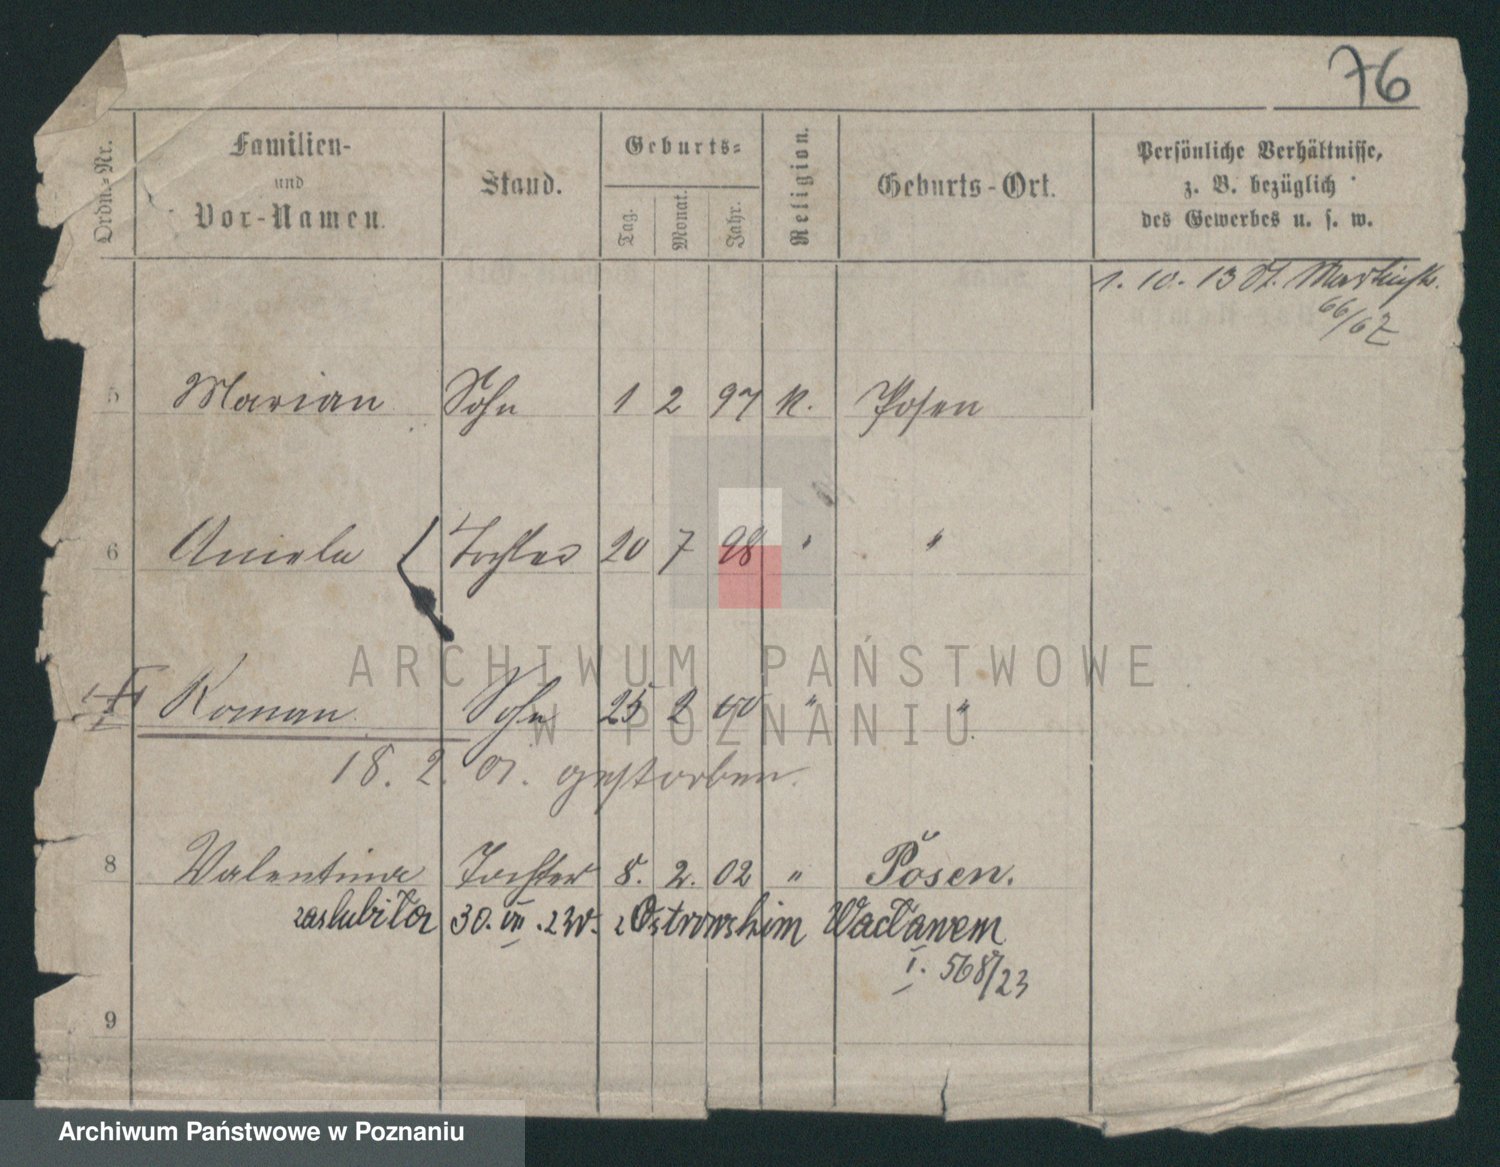 76
Ordn.-Nr.
Familien-
und
Vor-Namen.
Stand.
Geburts-
Tag.
Monat.
Jahr.
Religion.
Geburts-Ort.
Persönliche Verhältnisse,
z. B. bezüglich
des Gewerbes u. s. w.
1. 10. 13 St. Martinstr.
66/67
5 Marian Sohn 1 2 97 K. Posen
6 Aniela Tochter 20 7 98 " "
Roman Sohn 25 2 00 " "
18. 2. 01. gestorben.
8 Valentina Tochter 8. 2. 02 " Posen.
zaslubiła 30. VII. 23r. z Ostrowskim Wacławem
I. 568/23
9
ARCHIWUM PAŃSTWOWE
W POZNANIU
Archiwum Państwowe w Poznaniu